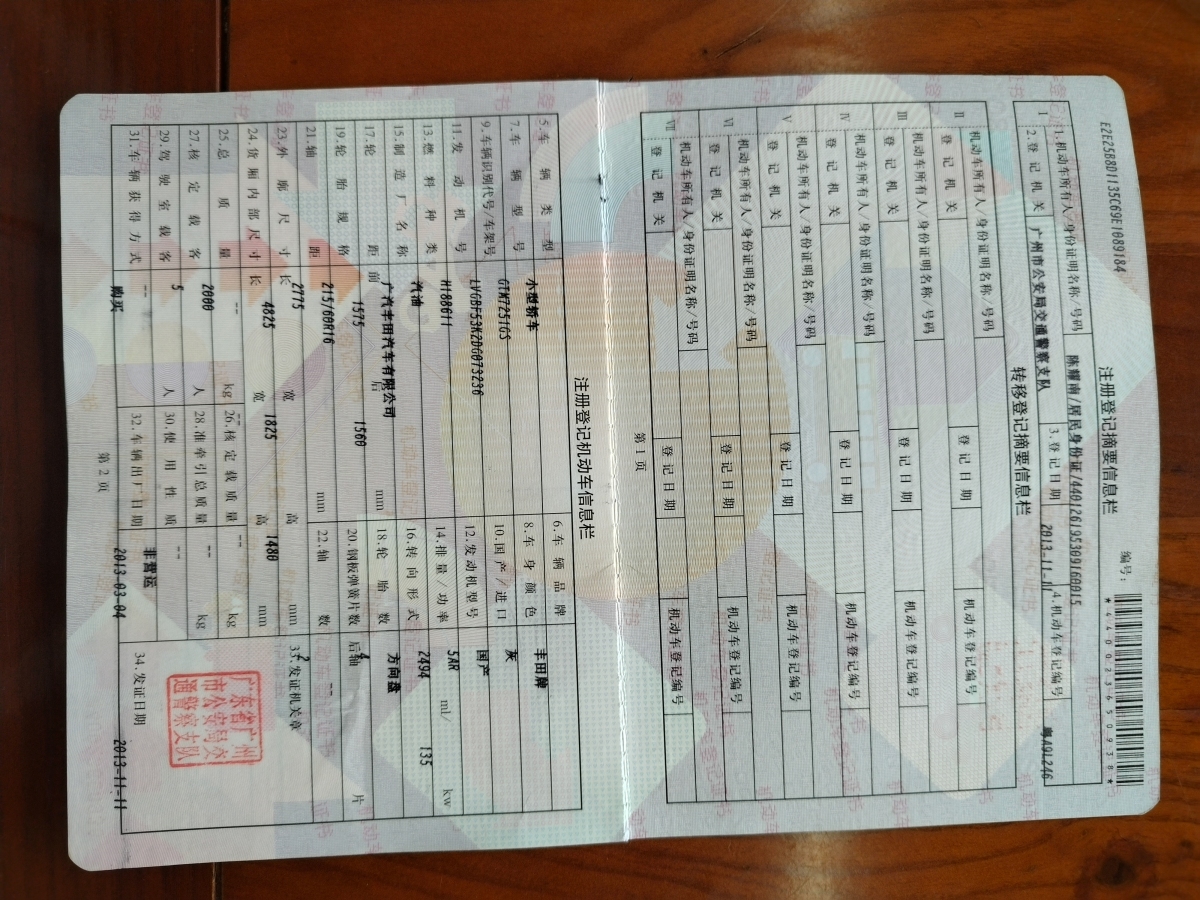 E2E25B8D1135C69E1089184
编号:
*440023650938*
注册登记摘要信息栏
Ⅰ 1.机动车所有人/身份证明名称/号码 陈耀南/居民身份证/440126195309160015
2.登记机关 广州市公安局交通警察支队 3.登记日期 2013-11-11 4.机动车登记编号 粤A9L246
转移登记摘要信息栏
Ⅱ 机动车所有人/身份证明名称/号码
登记机关 登记日期 机动车登记编号
Ⅲ 机动车所有人/身份证明名称/号码
登记机关 登记日期 机动车登记编号
Ⅳ 机动车所有人/身份证明名称/号码
登记机关 登记日期 机动车登记编号
Ⅴ 机动车所有人/身份证明名称/号码
登记机关 登记日期 机动车登记编号
Ⅵ 机动车所有人/身份证明名称/号码
登记机关 登记日期 机动车登记编号
Ⅶ 机动车所有人/身份证明名称/号码
登记机关 登记日期 机动车登记编号
第1页
注册登记机动车信息栏
5.车辆类型 小型轿车 6.车辆品牌 丰田牌
7.车辆型号 GTM7251GS 8.车身颜色 灰
9.车辆识别代号/车架号 LVGBF53K2DG073236 10.国产/进口 国产
11.发动机号 H188611 12.发动机型号 5AR
13.燃料种类 汽油 14.排量/功率 2494 ml/ 135 kw
15.制造厂名称 广汽丰田汽车有限公司 16.转向形式 方向盘
17.轮距 前 1575 后 1560 mm 18.轮胎数 4
19.轮胎规格 215/60R16 20.钢板弹簧片数 后轴 -- 片
21.轴距 2775 mm 22.轴数 2
23.外廓尺寸 长 4825 宽 1825 高 1480 mm 33.发证机关章
24.货厢内部尺寸 长 -- 宽 -- 高 -- mm
25.总质量 2000 kg 26.核定载质量 -- kg
27.核定载客 5 人 28.准牵引总质量 -- kg
29.驾驶室载客 -- 人 30.使用性质 非营运
31.车辆获得方式 购买 32.车辆出厂日期 2013-03-04 34.发证日期 2013-11-11
广东省广州
市公安局交
通警察支队
第2页